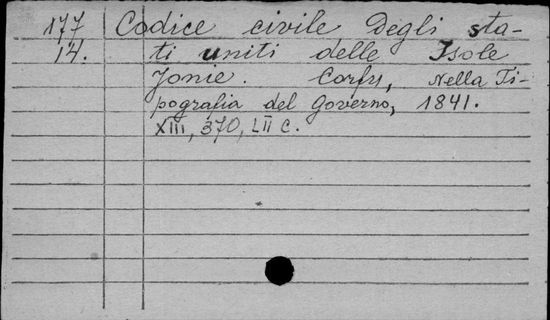 177 Codice civile Degli sta-
14. ti uniti delle Isole
Jonie. Corfu, Nella Ti-
pografia del Governo, 1841.
XIII, 370, LII c.